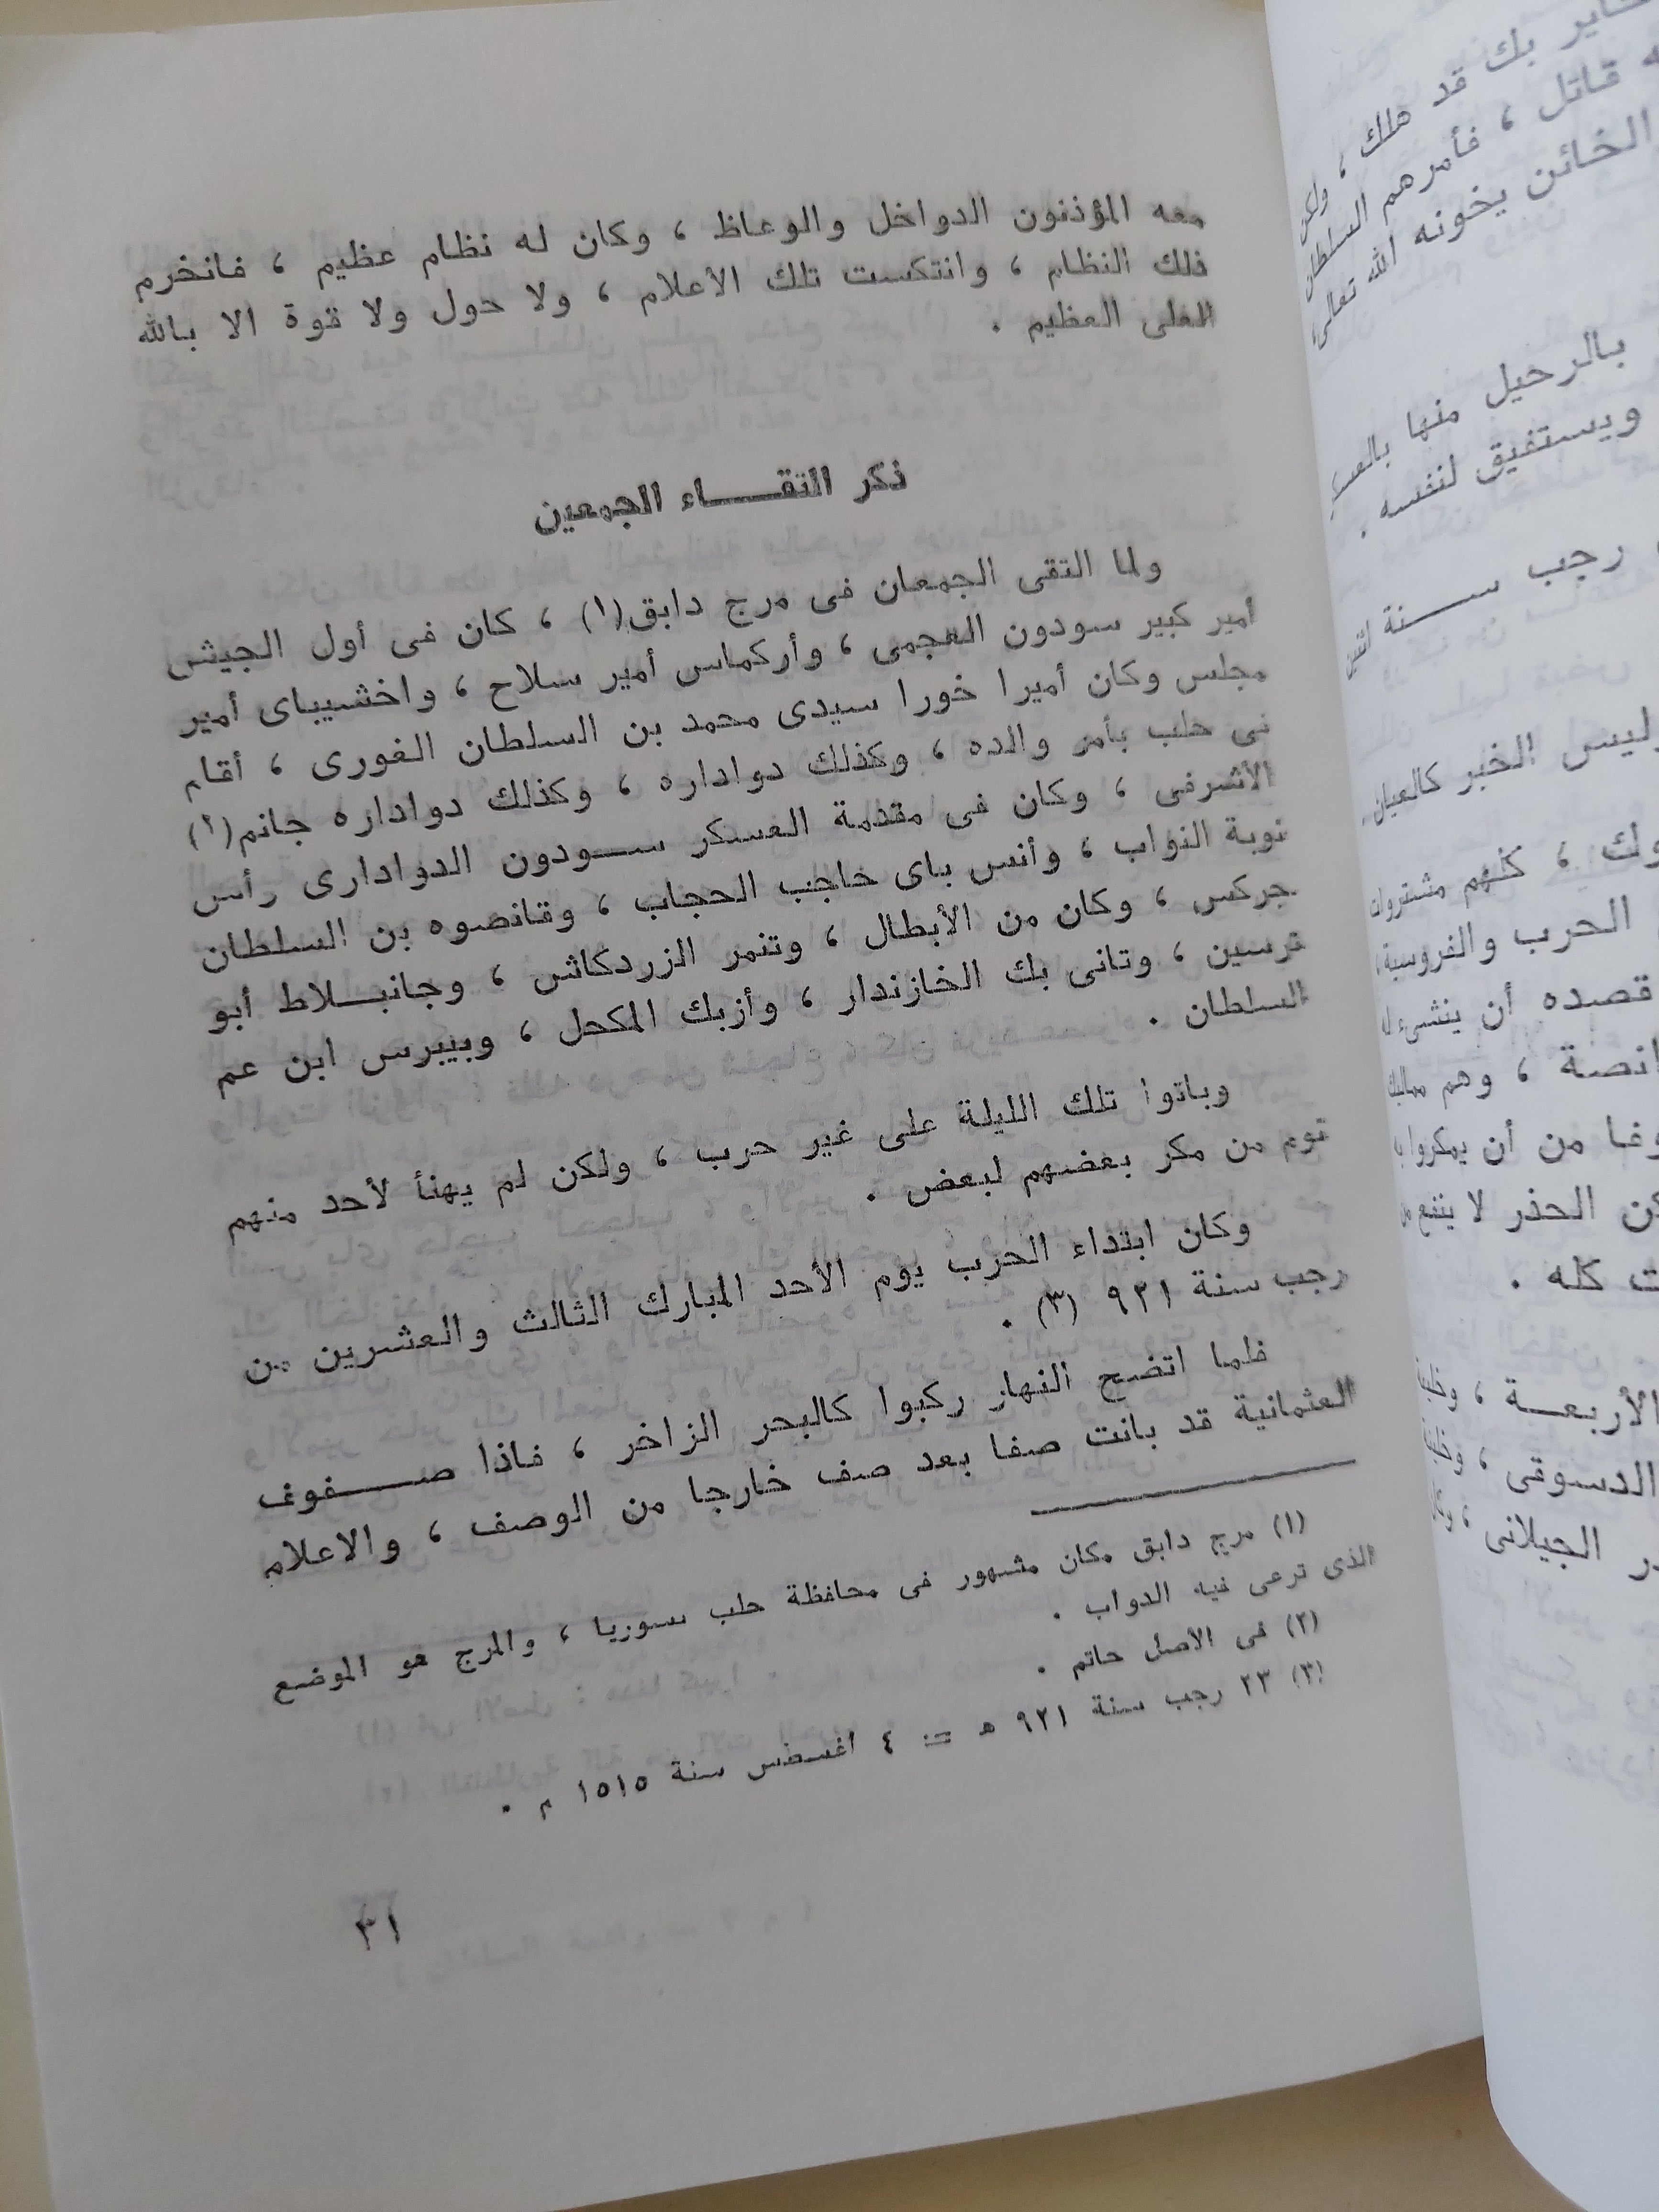 معه المؤذنون الدواخل والوعاظ ، وكان له نظام عظيم ، فانخرم
ذلك النظام ، وانتكست تلك الأعلام ، ولا حول ولا قوة الا بالله
العلى العظيم .
ذكر التقـــاء الجمعين
ولما التقى الجمعان فى مرج دابق(١) ، كان فى أول الجيش
أمير كبير سودون العجمى ، وأركماس أمير سلاح ، واخشيباى أمير
مجلس وكان أميرا خورا سيدى محمد بن السلطان الغورى ، أقام
فى حلب بأمر والده ، وكذلك دواداره ، وكذلك دواداره جانم(٢)
الأشرفى ، وكان فى مقدمة العسكر ســودون الدوادارى رأس
نوبة النواب ، وأنس باى حاجب الحجاب ، وقانصوه بن السلطان
جركس ، وكان من الأبطال ، وتنمر الزردكاش ، وجانبــلاط أبو
ترسين ، وتانى بك الخازندار ، وأزبك المكحل ، وبيبرس ابن عم
السلطان .
وباتوا تلك الليلة على غير حرب ، ولكن لم يهنأ لأحد منهم
نوم من مكر بعضهم لبعض .
وكان ابتداء الحرب يوم الأحد المبارك الثالث والعشرين من
رجب سنة ٩٢١ (٣) .
فلما اتضح النهار ركبوا كالبحر الزاخر ، فاذا صــفوف
العثمانية قد بانت صفا بعد صف خارجا من الوصف ، والاعلام
(١) مرج دابق مكان مشهور فى محافظة حلب سوريا ، والمرج هو الموضع
الذى ترعى فيه الدواب .
(٢) فى الأصل حاتم .
(٣) ٢٣ رجب سنة ٩٢١ ه = ٤ اغسطس سنة ١٥١٥ م .
٣١
بك قد هلك ، ولكن
قاتل ، فأمرهم السلطان
الخائن يخونه الله تعالى
بالرحيل منها بالعسكر
ويستفيق لنفسه .
رجب ســنة
وليس الخبر كالعيان
كلهم مشتروات
الحرب والفروسية
قصده أن ينشىء
، وهم مماليك
من أن يمكروا
الحذر لا ينفع
كله .
الأربعــة ،
الدسوقى ،
الجيلانى ،